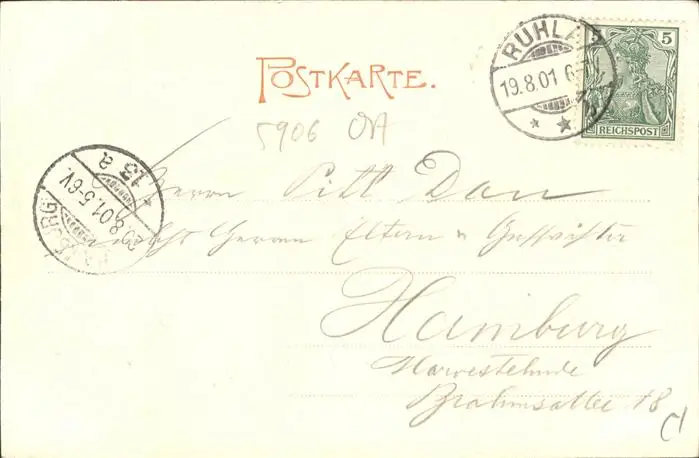 POSTKARTE.
RUHLA
19.8.01 6-
5
5
REICHSPOST
5906
HAMBURG
20.8.01.5-6V.
* 13 a
Herrn Pitt Dan
nebst Herren Eltern u Geschwister
Hamburg
Harvestehude
Brahmsallee 18